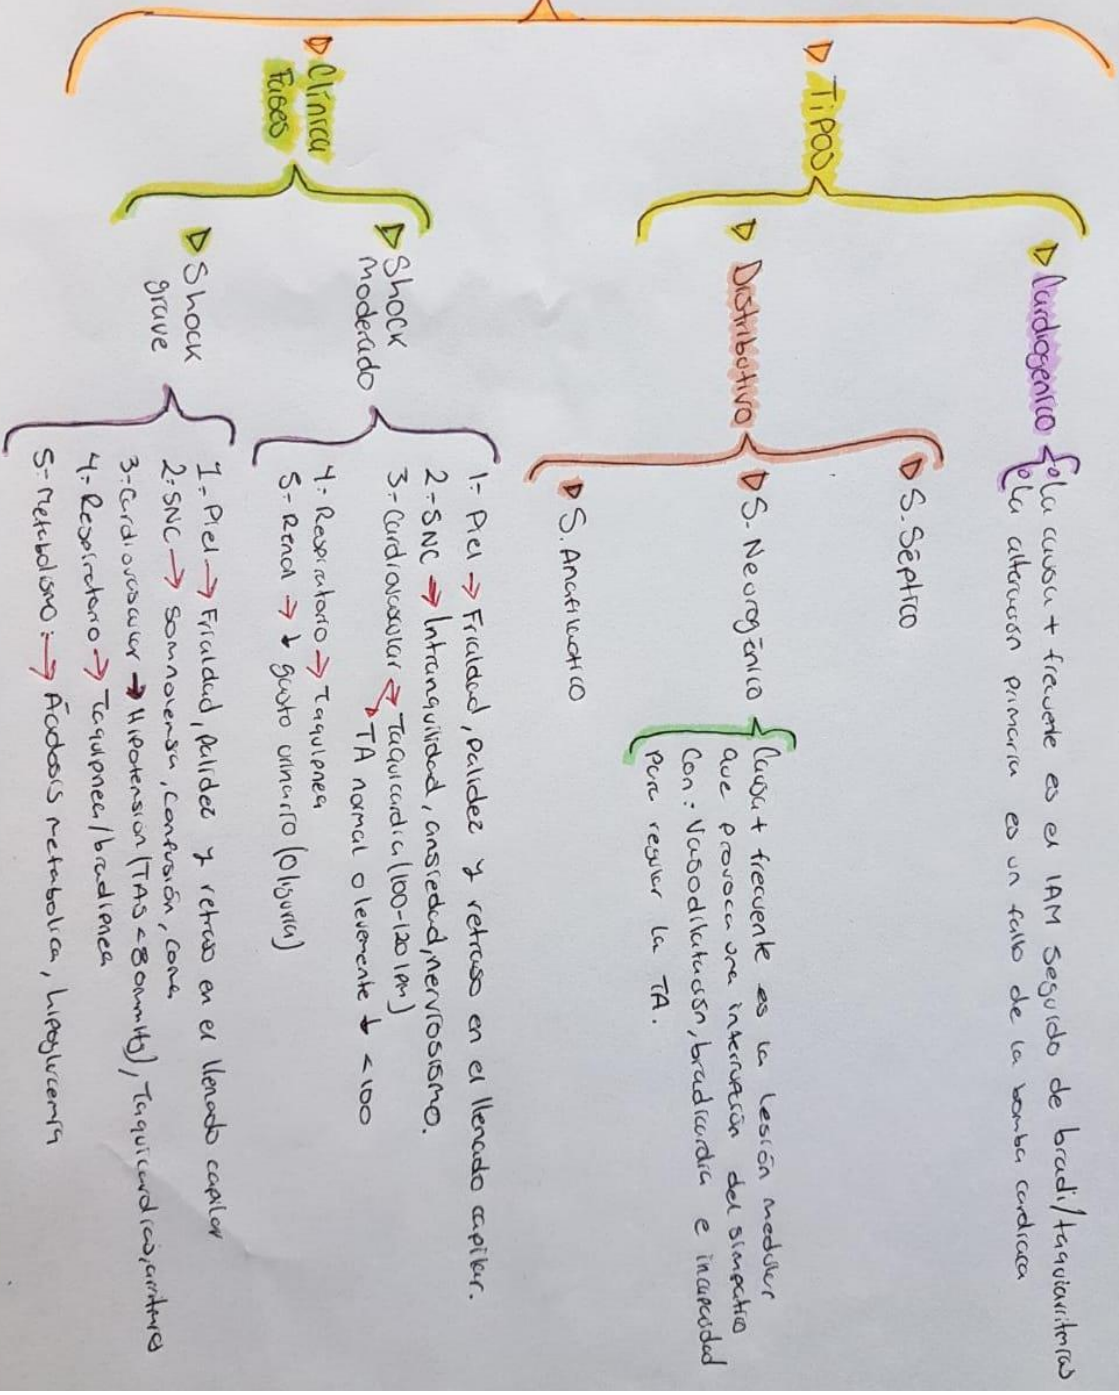 Tipos
Cardiogénico
la causa + frecuente es el IAM seguido de bradi/taquiarritmias
la alteración primaria es un fallo de la bomba cardiaca
Distributivo
S. Séptico
S. Neurogénico
Causa + frecuente es la lesión medular
que provoca una interrupción del simpático
con: Vasodilatación, bradicardia e incapacidad
para regular la TA.
S. Anafiláctico
Clínica
Fases
Shock
moderado
1- Piel → Frialdad, palidez y retraso en el llenado capilar.
2- SNC → Intranquilidad, ansiedad, nerviosismo.
3- Cardiovascular → Taquicardia (100-120 lpm)
→ TA normal o levemente ↓ <100
4- Respiratorio → Taquipnea
5- Renal → ↓ gasto urinario (Oliguria)
Shock
grave
1- Piel → Frialdad, palidez y retraso en el llenado capilar
2- SNC → Somnolencia, confusión, coma
3- Cardiovascular → Hipotensión (TAS <80mmHg), Taquicardias, arritmias
4- Respiratorio → Taquipnea/bradipnea
5- Metabolismo: → Acidosis metabolica, hipoglucemia